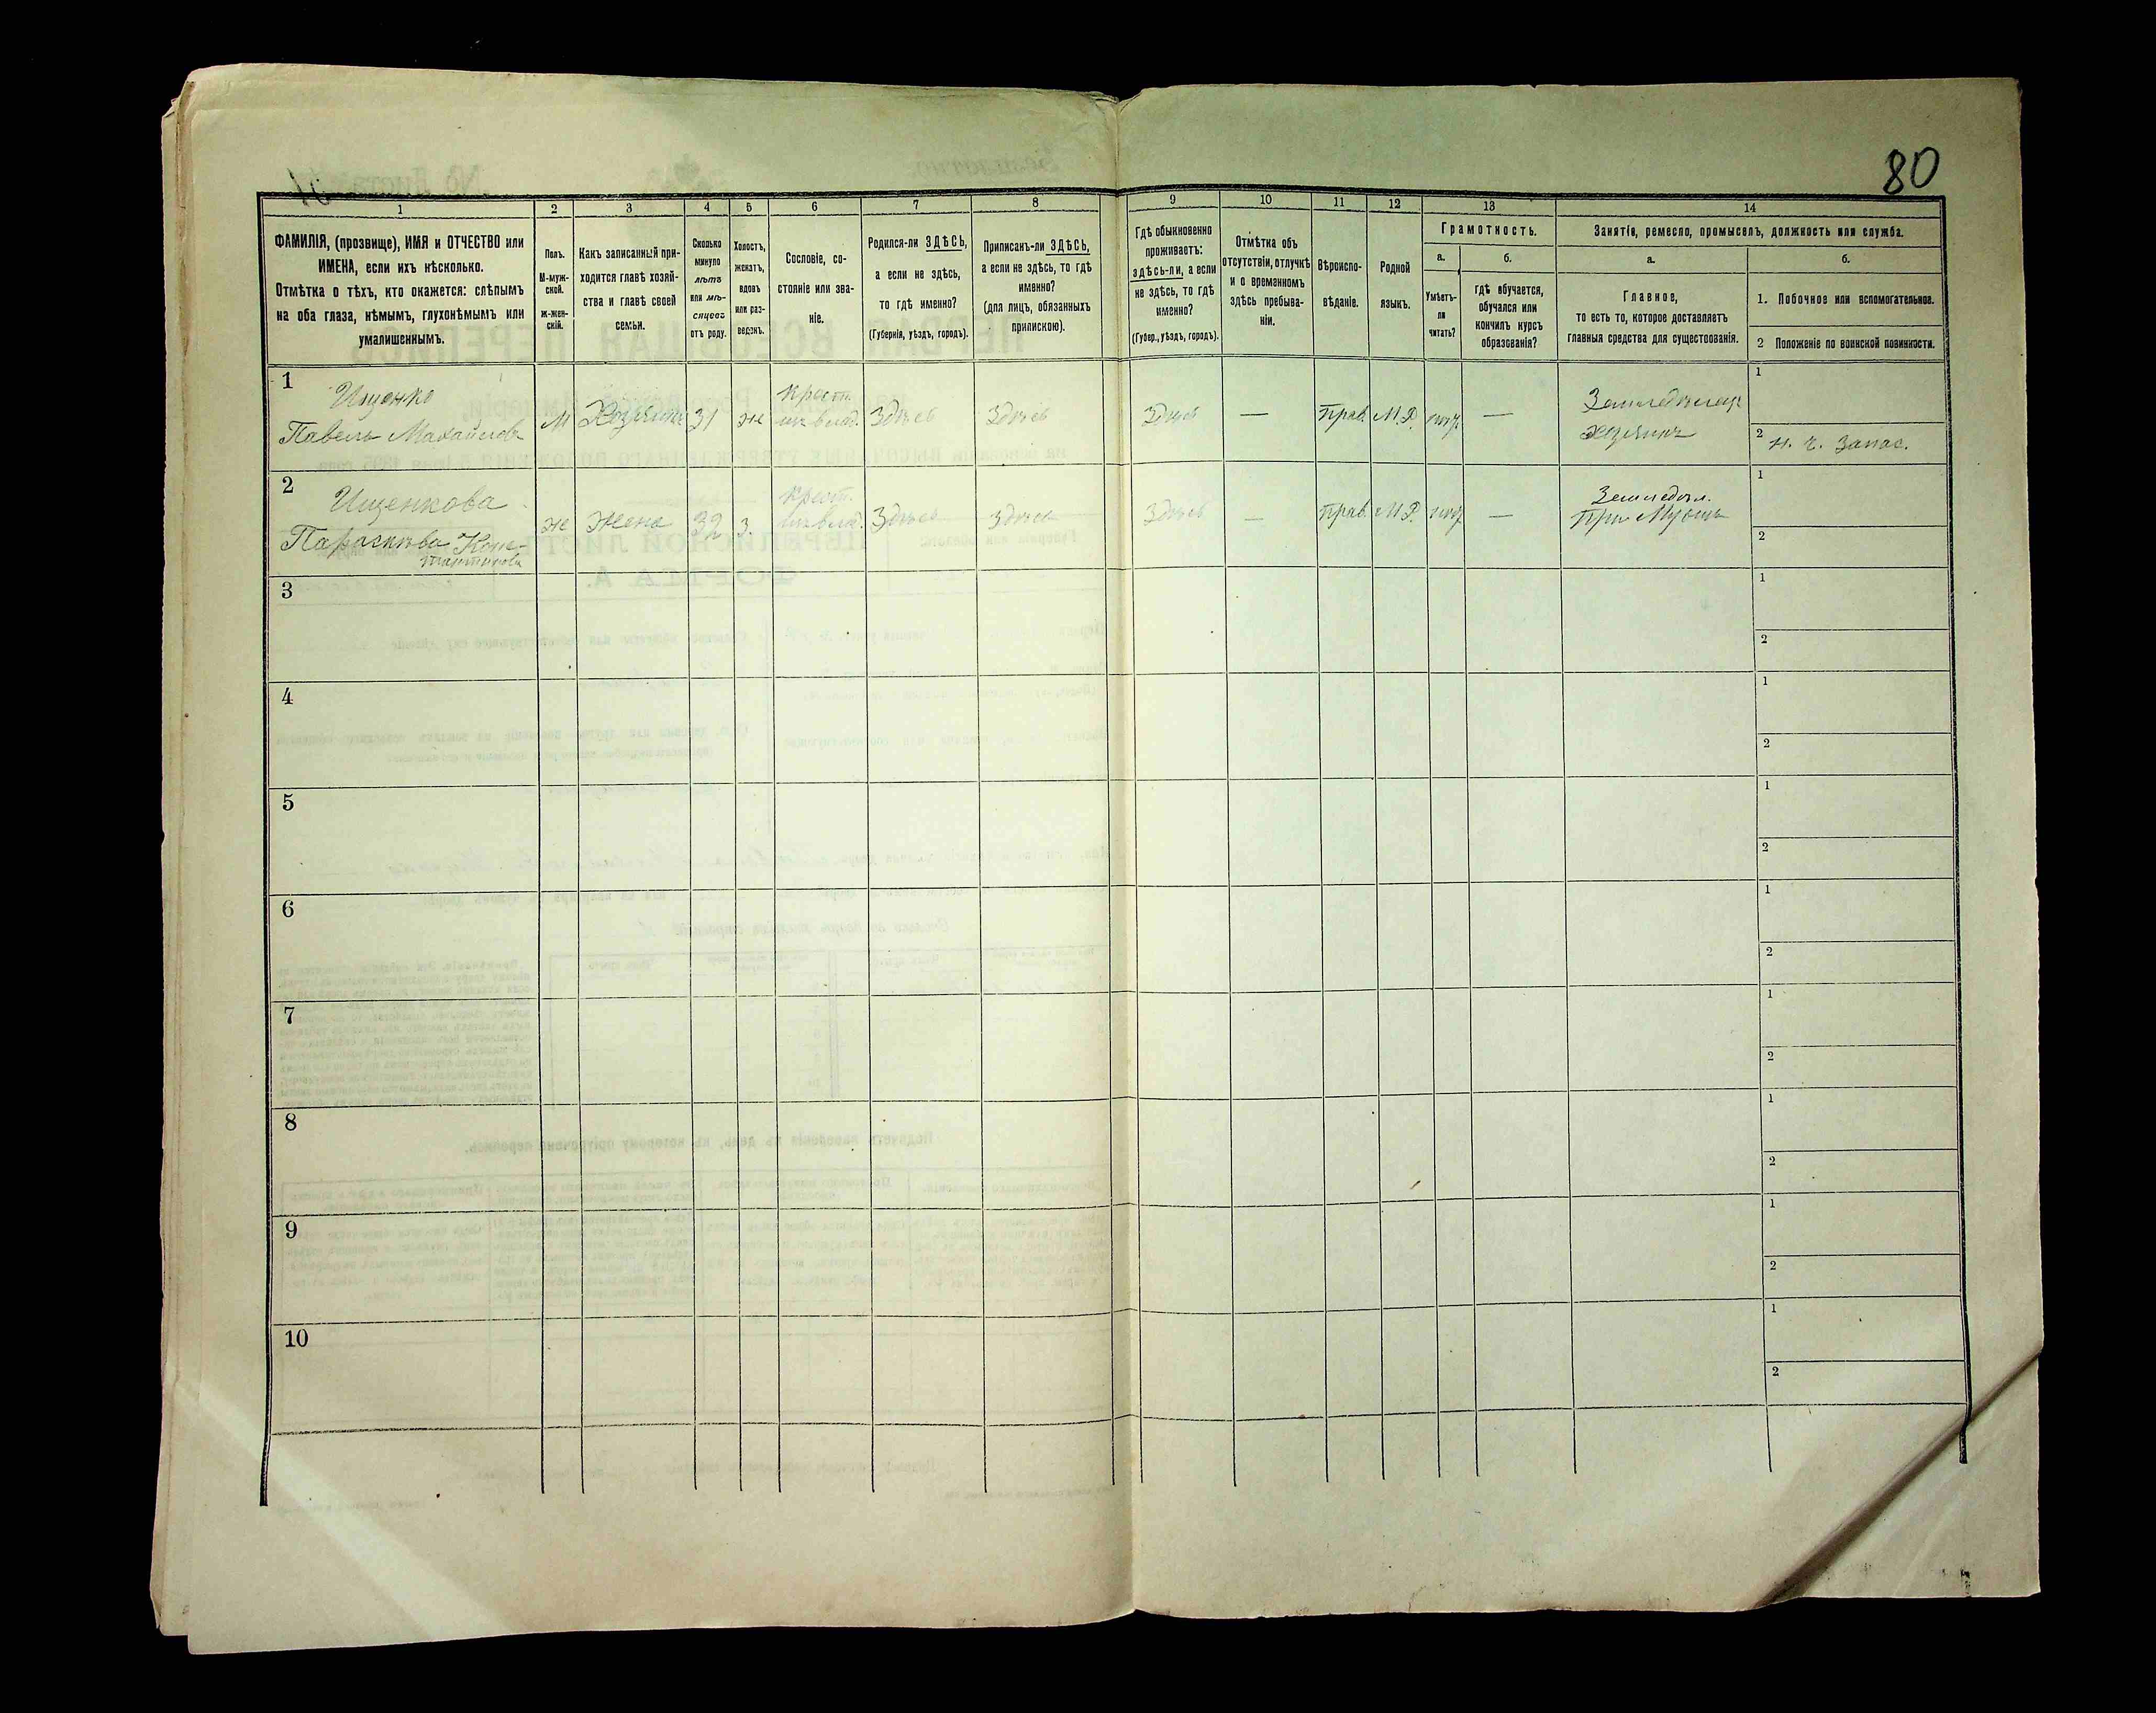 80
1
2
3
4
5
6
7
8
9
10
11
12
13
14
ФАМИЛІЯ, (прозвище), ИМЯ и ОТЧЕСТВО или
ИМЕНА, если ихъ нѣсколько.
Отмѣтка о тѣхъ, кто окажется: слѣпымъ
на оба глаза, нѣмымъ, глухонѣмымъ или
умалишеннымъ.
Полъ.
М-муж-
ской.
ж-жен-
скій.
Какъ записанный при-
ходится главѣ хозяй-
ства и главѣ своей
семьи.
Сколько
минуло
лѣтъ
или мѣ-
сяцевъ
отъ роду.
Холостъ,
женатъ,
вдовъ
или раз-
веденъ.
Сословіе, со-
стояніе или зва-
ніе.
Родился-ли ЗДѢСЬ,
а если не здѣсь,
то гдѣ именно?
(Губернія, уѣздъ, городъ).
Приписанъ-ли ЗДѢСЬ,
а если не здѣсь, то гдѣ
именно?
(для лицъ, обязанныхъ
припискою).
Гдѣ обыкновенно
проживаетъ:
здѣсь-ли, а если
не здѣсь, то гдѣ
именно?
(Губер., уѣздъ, городъ).
Отмѣтка объ
отсутствіи, отлучкѣ
и о временномъ
здѣсь пребыва-
ніи.
Вѣроиспо-
вѣданіе.
Родной
языкъ.
Грамотность.
а.
Умѣетъ-
ли
читать?
б.
гдѣ обучается,
обучался или
кончилъ курсъ
образованія?
Занятія, ремесло, промыселъ, должность или служба.
а.
Главное,
то есть то, которое доставляетъ
главныя средства для существованія.
б.
1. Побочное или вспомогательное.
2 Положеніе по воинской повинности.
1
Ищенко
Павелъ Михайловъ
М
Хозяинъ
31
ж
Крест.
изъ влад.
Здѣсь
Здѣсь
Здѣсь
—
Прав.
М.Р.
—
Земледѣлецъ
хозяинъ
1
2 н. ч. запас.
2
Ищенкова
Параскева Конс-
тантинова
ж
Жена
32
з.
Крест.
изъ влад.
Здѣсь
Здѣсь
Здѣсь
—
Прав.
М.Р.
—
Земледѣл.
При Мужѣ
1
2
3
1
2
4
1
2
5
1
2
6
1
2
7
1
2
8
1
2
9
1
2
10
1
2